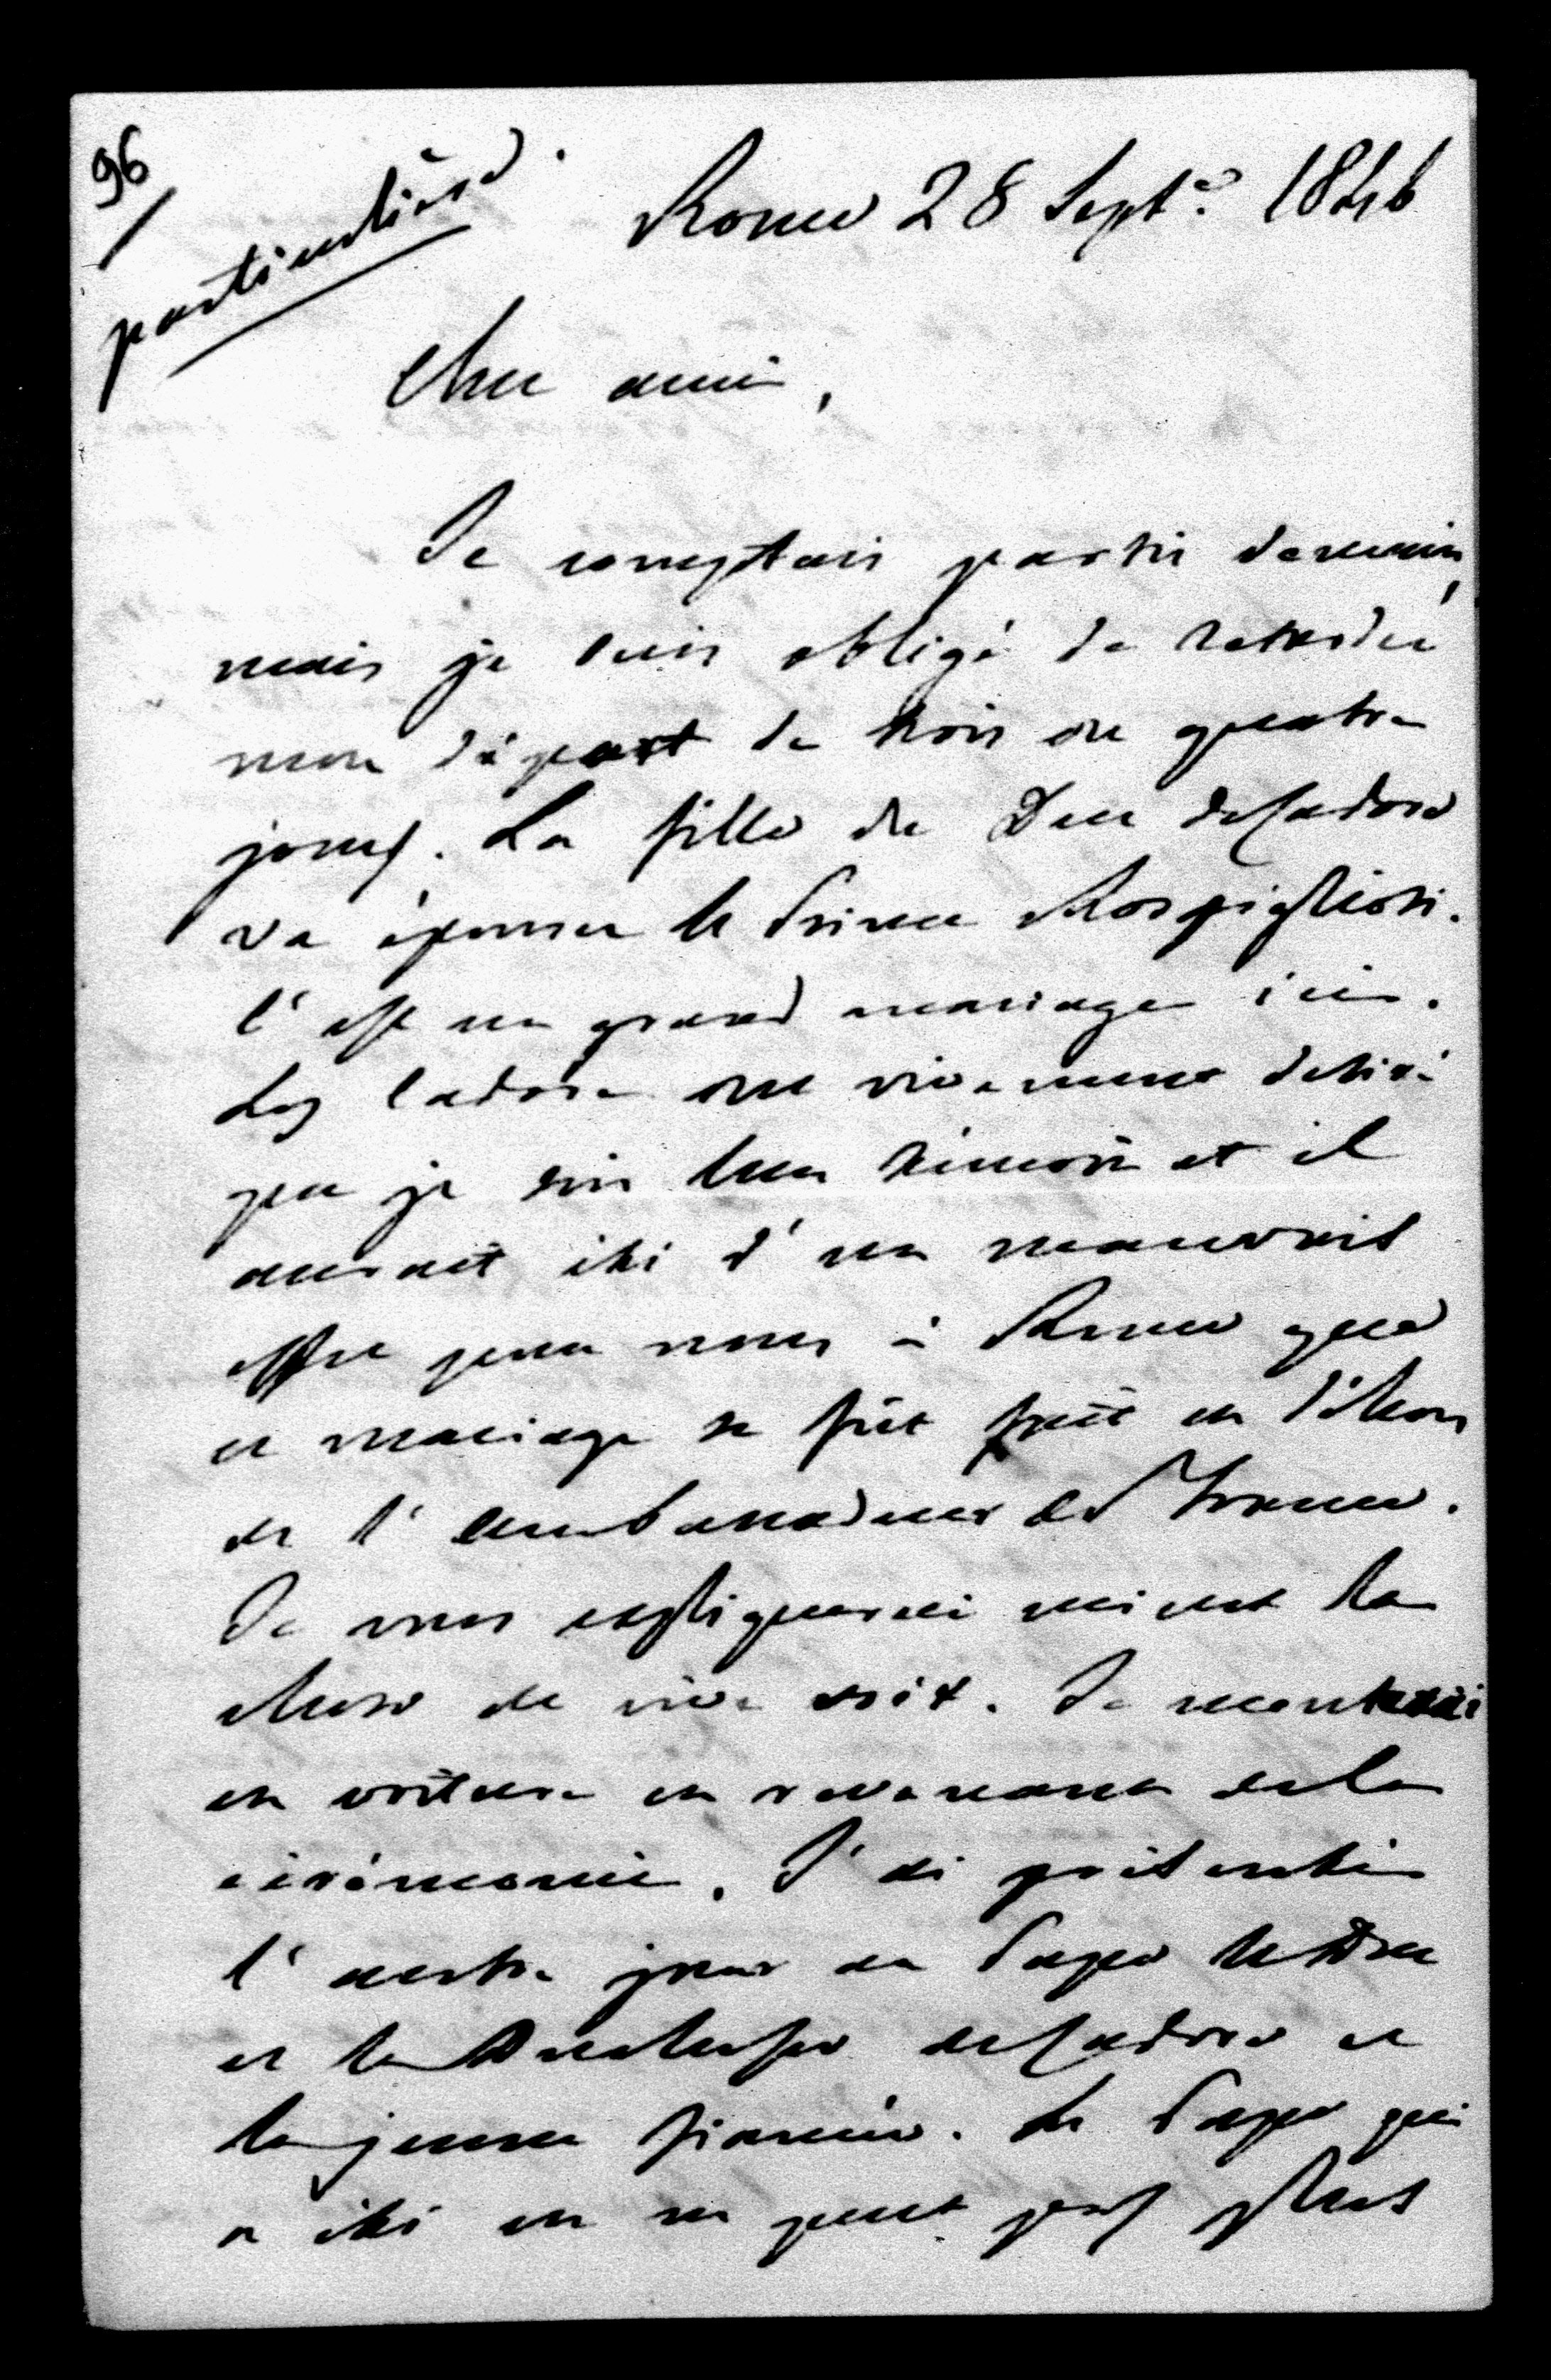 96
particulière.
Rome 28 Septe. 1846
Cher ami,
Je comptais partir demain,
mais je suis obligé de retarder
mon départ de trois ou quatre
jours. La fille du Duc de Cadore
va épouser le Prince Rospigliosi.
C'est un grand mariage ici.
Les Cadore ont vivement désiré
que je sois leur témoin et il
aurait été d'un mauvais
effet pour nous à Rome que
ce mariage se fût fait en dehors
de l'ambassadeur de France.
Je vous expliquerai mieux la
chose de vive voix. Je monterai
en voiture en revenant de la
cérémonie. J'ai présenté
l'autre jour au Pape le Duc
et la Duchesse de Cadore et
la jeune fiancée. Le Pape qui
a été on ne peut pas plus